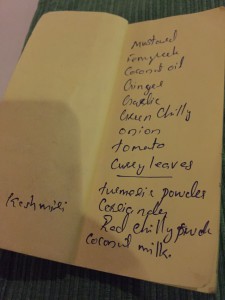 Mustard
Fenugreek
Coconut oil
Ginger
Garlic
Green Chilly
onion
tomato
Curry leaves
turmeric powder
Coriander
Kashmiri Red chilly powde
Coconut milk.